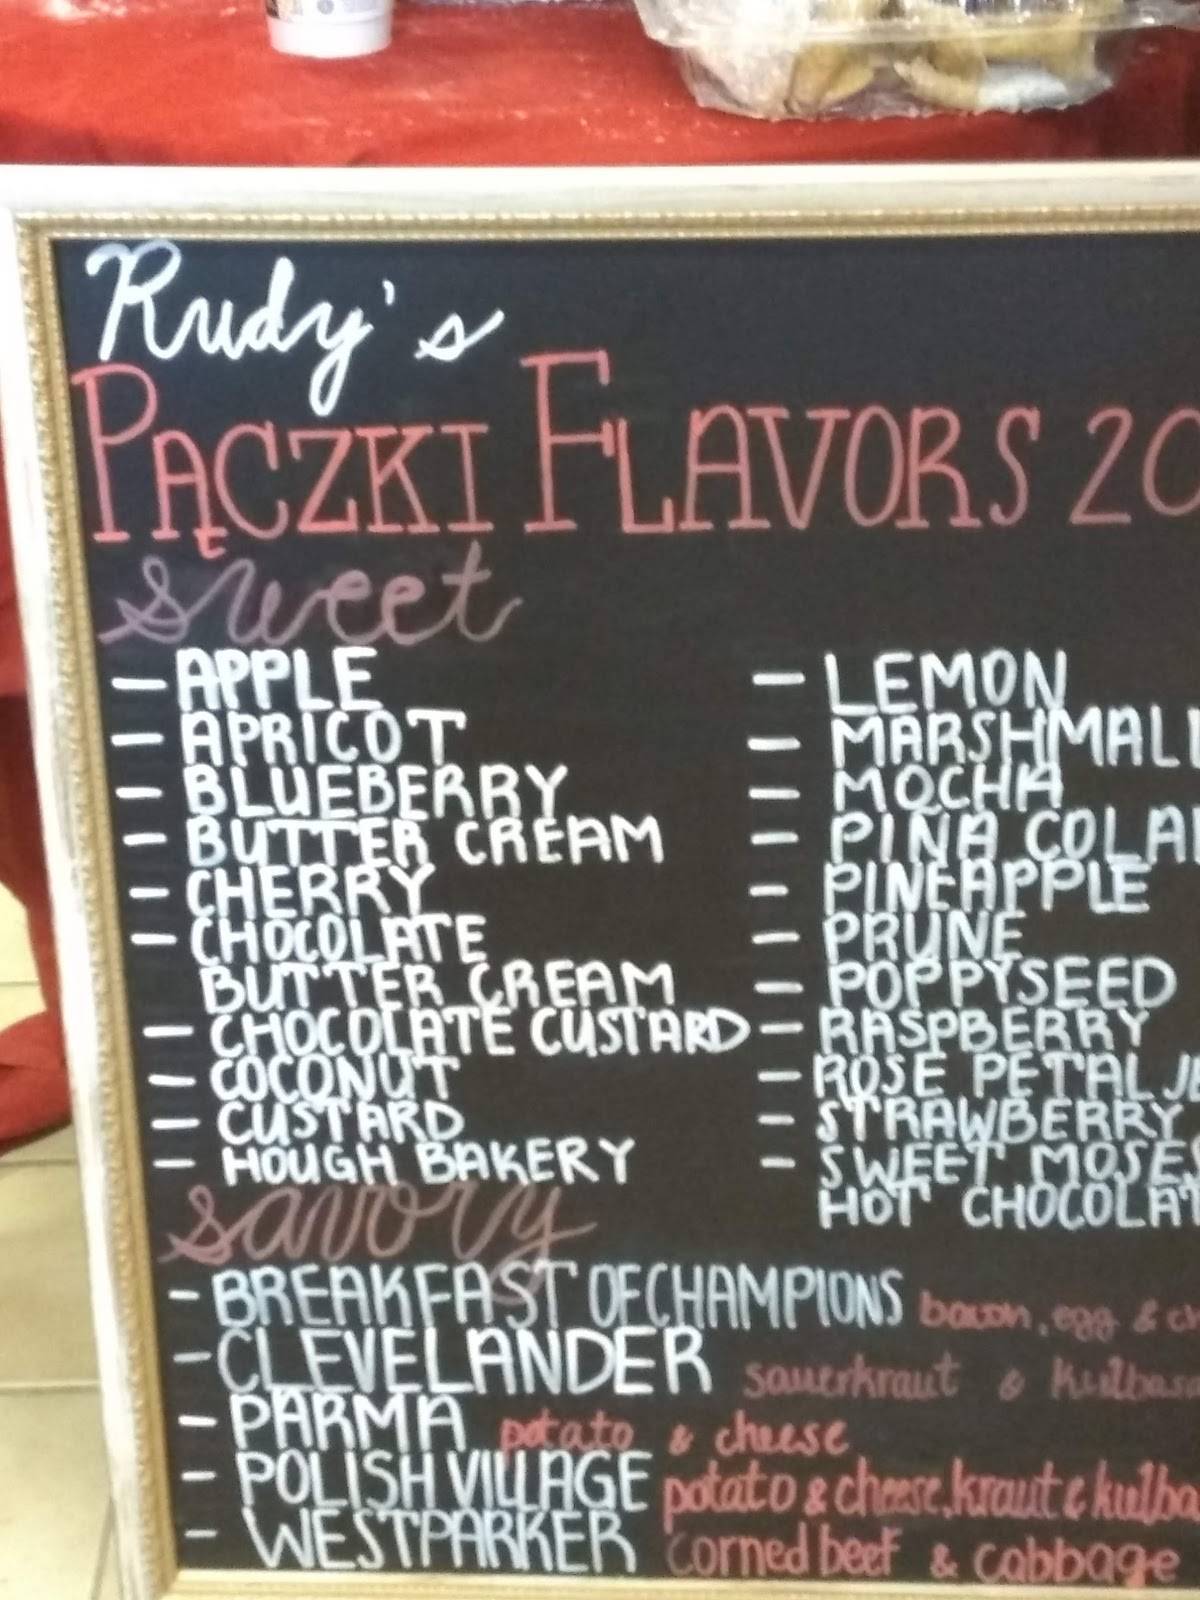 Rudy's
PĄCZKI FLAVORS 20
sweet
- APPLE
- APRICOT
- BLUEBERRY
- BUTTER CREAM
- CHERRY
- CHOCOLATE
BUTTER CREAM
- CHOCOLATE CUSTARD
- COCONUT
- CUSTARD
- HOUGH BAKERY
- LEMON
- MARSHMALL
- MOCHA
- PINA COLA
- PINEAPPLE
- PRUNE
- POPPYSEED
- RASPBERRY
- ROSE PETAL JE
- STRAWBERRY
- SWEET MOSES
HOT CHOCOLAT
savory
- BREAKFAST OF CHAMPIONS bacon, egg & ch
- CLEVELANDER sauerkraut & kielbasa
- PARMA potato & cheese
- POLISH VILLAGE potato & cheese, kraut & kielba
- WESTPARKER corned beef & cabbage